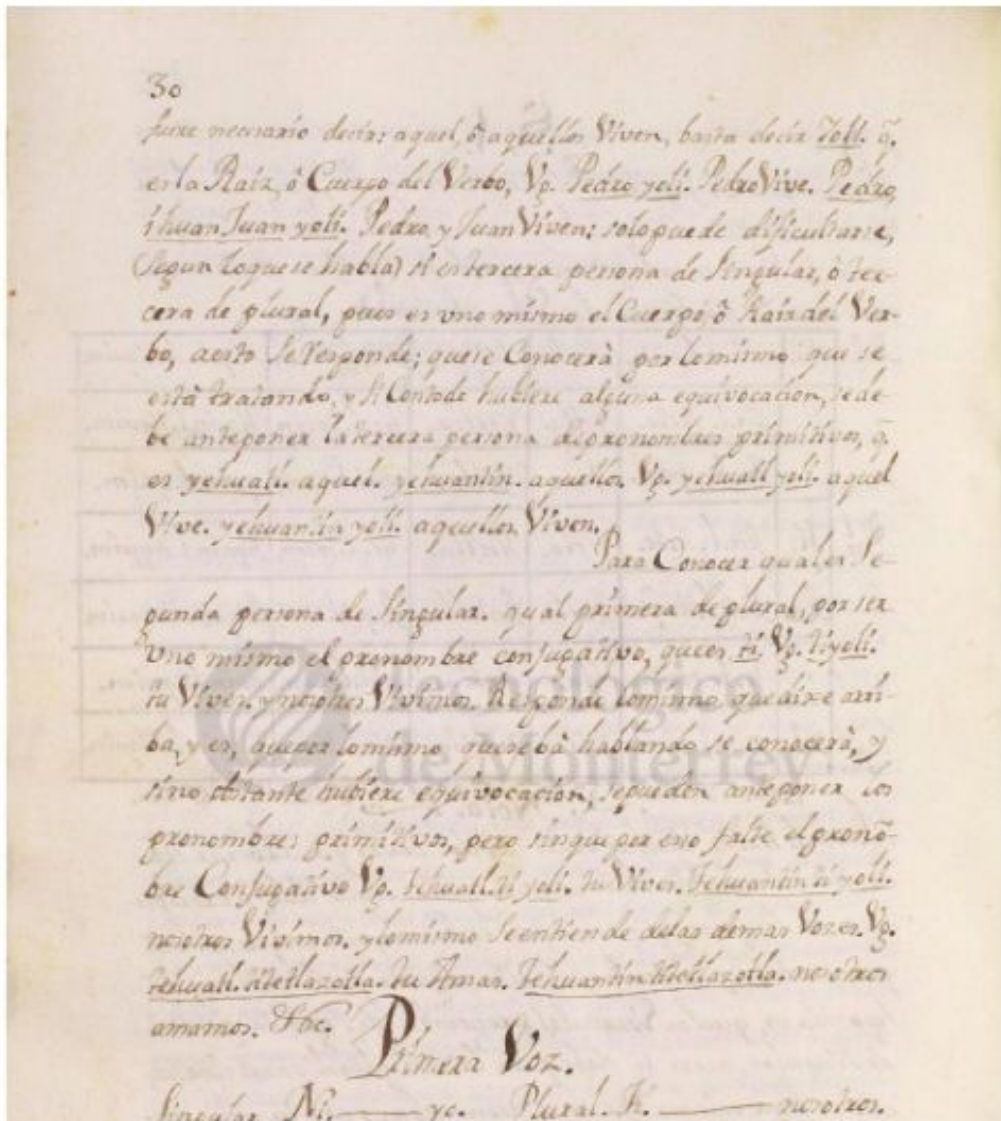 30
fuere necesario decir: aquel, ò aquellos Viven, basta decir Yoli. q̃.
es la Raiz, ò Cuerpo del Verbo, Vg. Pedro yoli. Pedro Vive. Pedro,
ihuan Juan yoli. Pedro, y Juan Viven: solo puede dificultarse,
(segun loque se habla) si es tercera persona de Singular, ò ter-
cera de plural, pues es uno mismo el Cuerpo, ò Raiz del Ver-
bo, aesto se responde; que se Conocerà por lo mismo que se
està tratando, y si Contodo hubiere alguna equivocacion, se de-
be anteponer la tercera persona de pronombres primitivos, q̃.
es yehuatl. aquel. yehuantin. aquellos. Vg. yehuatl yoli. aquel
Vive. yehuantin yoli. aquellos Viven.
Para Conocer qual es Se-
gunda persona de Singular. qual primera de plural, por ser
uno mismo el pronombre conjugativo, que es ti. Vg. tiyoli.
tu Vives. y nosotros Vivimos. Responde lo mismo que dixe arri-
ba, y es, que por lo mismo que se bà hablando se conocerà, y
sino obstante hubiere equivocacion, se pueden anteponer los
pronombres primitivos, pero sin que por eso falte el pronõ-
bre Conjugativo Vg. tehuatl. ti yoli. tu Vives. tehuantin ti yoli.
nosotros Vivimos. y lo mismo se entiende delas demas Vozes. Vg.
tehuatl. titetlazotla. tu Amas. tehuantin titetlazotla. nosotros
amamos. &c.
Primera Voz.
Singular Ni. yo. Plural. Ti. nosotros.
Tecnológico
de Monterrey